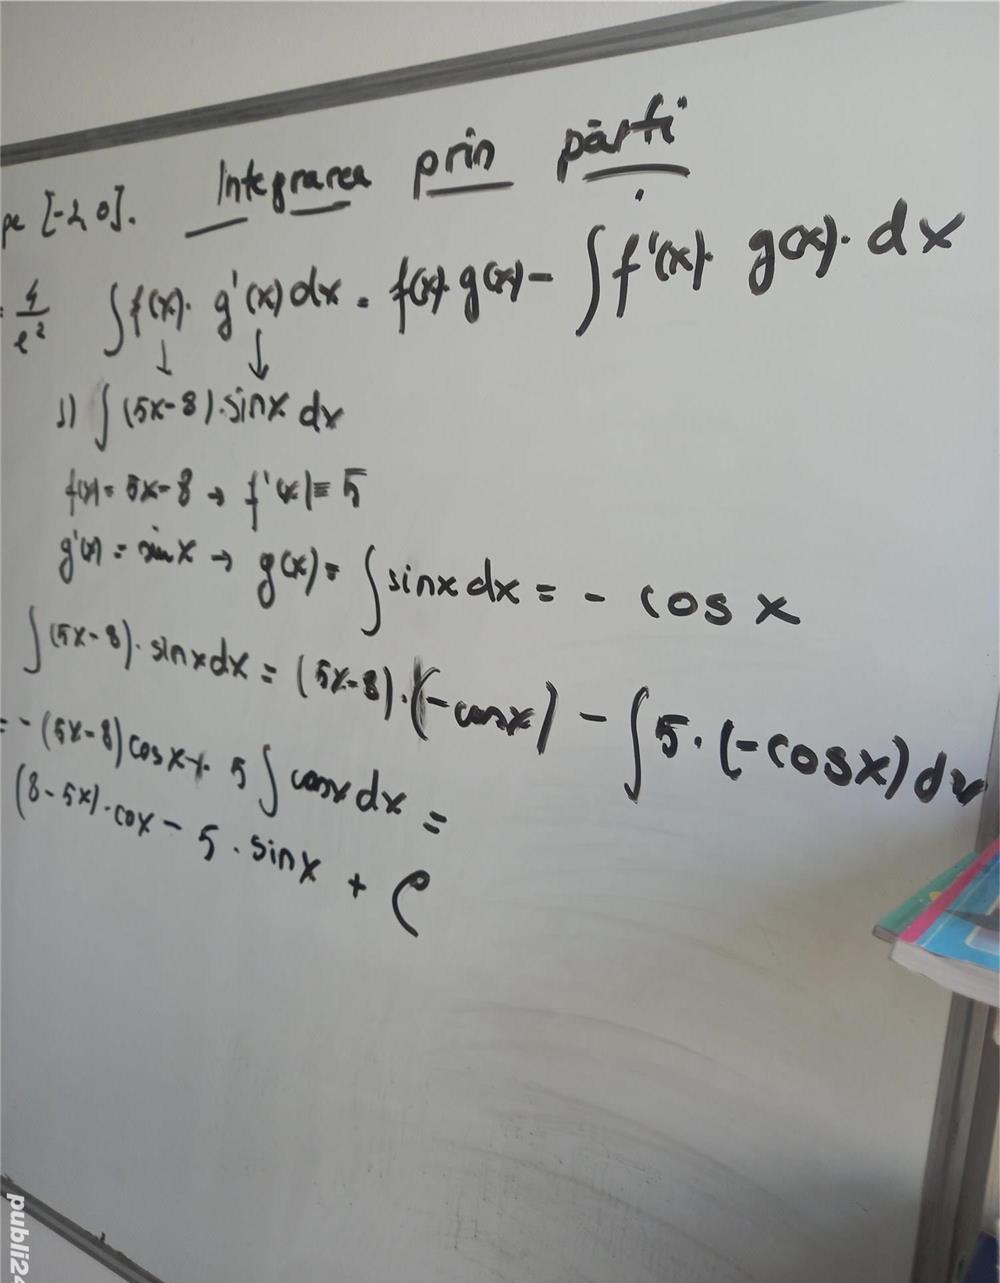 Integrarea prin părți
pe [-2, 0].
= 4/e²
∫f(x)·g'(x)dx = f(x)·g(x) - ∫f'(x)·g(x)·dx
↓ ↓
1) ∫(5x-8)·sinx dx
f(x) = 5x-8 → f'(x) = 5
g'(x) = sinx → g(x) = ∫sinxdx = - cos x
∫(5x-8)·sinxdx = (5x-8)·(-cosx) - ∫5·(-cosx)dx
= -(5x-8)cosx+ 5∫cosxdx =
(8-5x)·cox - 5·sinx + C
publi24